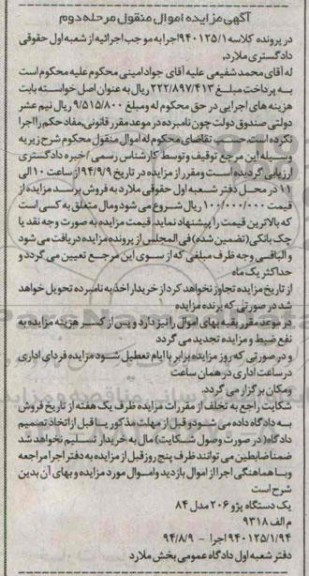 آگهی مزایده اموال منقول مرحله دوم
در پرونده کلاسه ۹۴۰۱۲۵/۱اجرا به موجب اجرائیه از شعبه اول حقوقی
دادگستری ملارد
له آقای محمد شفیعی علیه آقای جواد امینی محکوم علیه محکوم است
به پرداخت مبلغ ۲۲۲/۸۹۷/۴۱۳ ریال به عنوان اصل خواسته بابت
هزینه های اجرایی در حق محکوم له ومبلغ ۹/۵۱۵/۸۰۰ ریال نیم عشر
دولتی صندوق دولت چون نامبرده در موعد مقرر قانونی مفاد حکم را اجرا
نکرده است، حسب تقاضای محکوم له اموال منقول محکوم شرح زیر به
وسیله این مرجع توقیف و توسط کارشناس رسمی /خبره دادگستری
ارزیابی گردیده است و مقرر از مزایده در تاریخ ۹۴/۹/۹ از ساعت ۱۰ الی
۱۱ در محل دفتر شعبه اول حقوقی ملارد به فروش برسد مزایده از
قیمت ۱۰۰/۰۰۰/۰۰۰ ریال شروع می شود و مال متعلق به کسی است
که بالاترین قیمت را پیشنهاد نماید. قیمت مزایده به صورت وجه نقد یا
چک بانکی(تضمین شده) فی المجلس از برنده مزایده دریافت می شود
و الباقی وجه ظرف مبلغی که از سوی این مرجع تعیین می گردد و
حداکثر یک ماه
از تاریخ مزایده تجاوز نخواهد کرد از خریدار اخذ به نامبرده تحویل خواهد
شد در صورتی که برنده مزایده
در موعد مقرر بقیه بهای اموال را نپردازد و پس از کسر هزینه مزایده به
نفع ضبط و مزایده تجدید می گردد
و در صورتی که روز مزایده برابر با ایام تعطیل شود مزایده فردای اداری
در ساعت اداری در همان ساعت
ومکان برگزار می گردد.
شکایت راجع به تخلف از مقررات مزایده ظرف یک هفته از تاریخ فروش
به دادگاه داده می شود و قبل از مهلت مذکور یا قبل از اتخاذ تصمیم
دادگاه( در صورت وصول شکایت) مال به خریدار تسلیم نخواهد شد
ضمنا ضابطین می توانند ظرف پنج روز قبل از مزایده به دفتر اجرا مراجعه
وبا هماهنگی اجرا از اموال بازدید و اموال مورد مزایده و بهای آن بدین
شرح است
یک دستگاه پژو ۲۰۶ مدل ۸۴
م الف ۹۳۱۸
۹۴۰۱۲۵/۱/۹۴ اجرا - ۹۴/۸/۹
دفتر شعبه اول دادگاه عمومی بخش ملارد